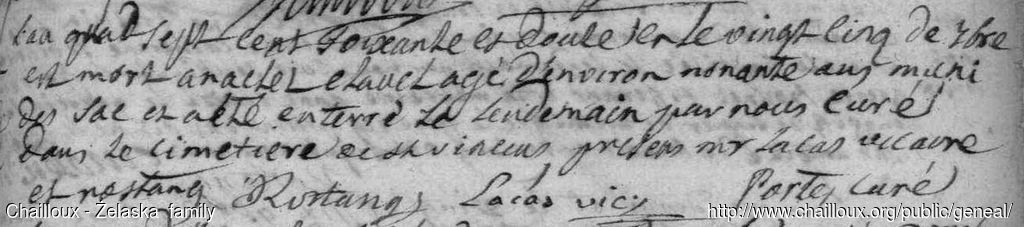 quat sept cent soixante et douse et le vingt cinq de
est mort anaclet clauel agé d'environ nonante ans muni
des sac et a eté enterré le lendemain par nous curé
dans le cimetiere de st vincens presens mr lacas viccaire
et rostang Rostang Lacas vic Portes curé
Chailloux - Żelaska family http://www.chailloux.org/public/geneal/